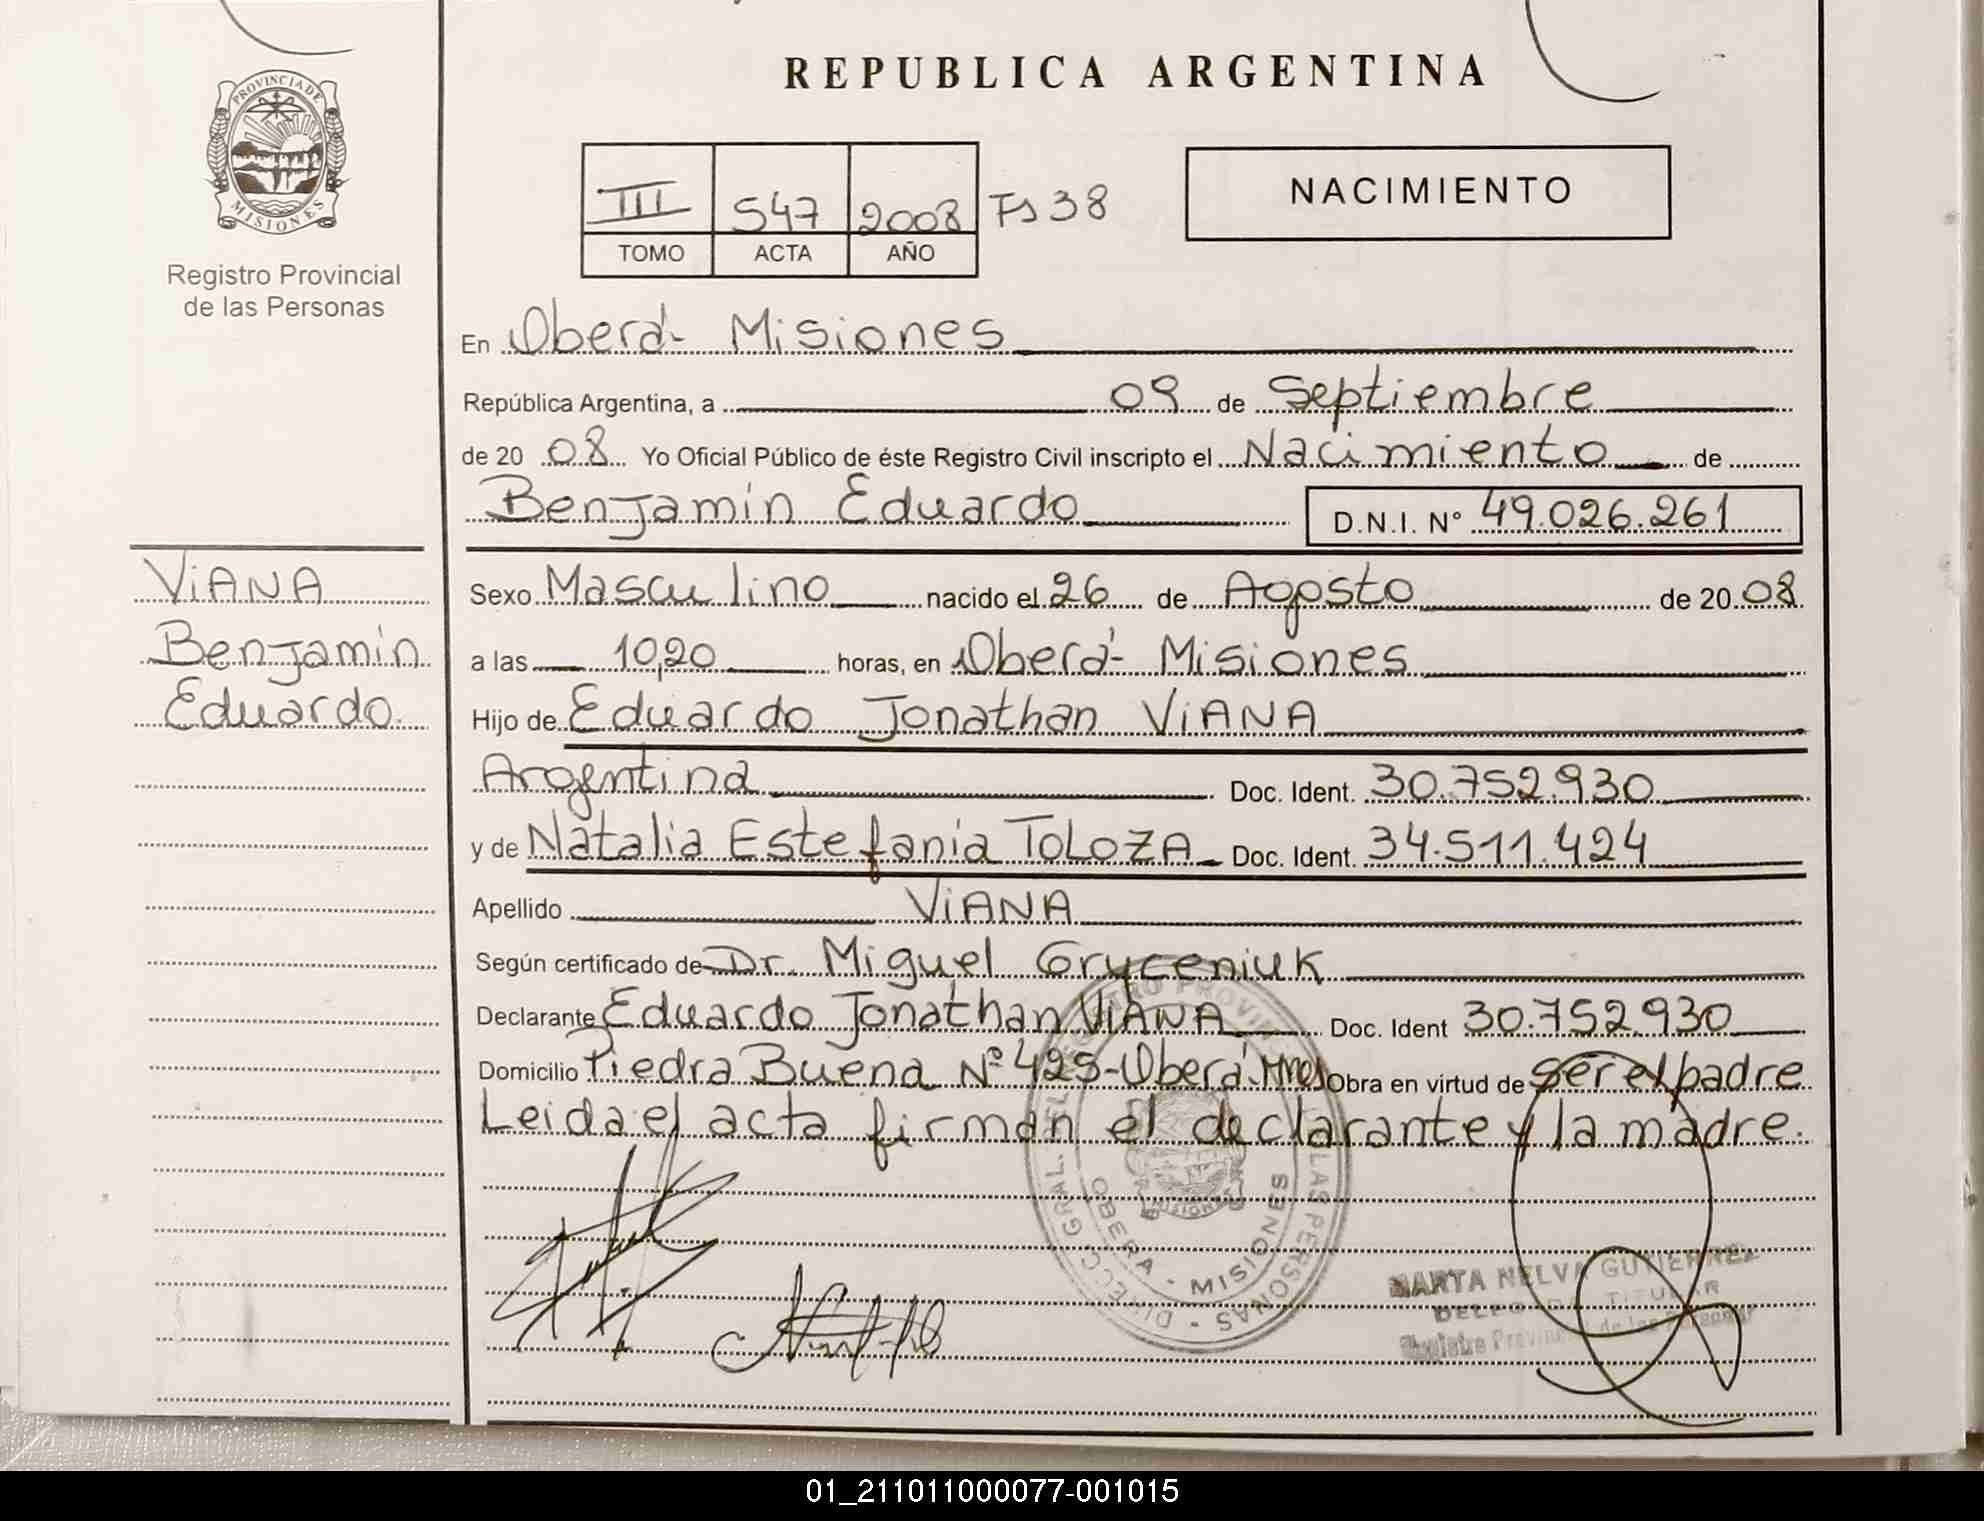 REPUBLICA ARGENTINA
PROVINCIA DE MISIONES
Registro Provincial
de las Personas
III 547 2008 Fs 38
TOMO ACTA AÑO
NACIMIENTO
En Oberá - Misiones
República Argentina, a 09 de Septiembre
de 20 08 Yo Oficial Público de éste Registro Civil inscripto el Nacimiento de
Benjamín Eduardo D.N.I. N° 49.026.261
VIANA
Benjamín
Eduardo.
Sexo Masculino nacido el 26 de Agosto de 20 08
a las 10,20 horas, en Oberá - Misiones
Hijo de Eduardo Jonathan VIANA
Argentina Doc. Ident. 30.752.930
y de Natalia Estefania TOLOZA Doc. Ident. 34.511.424
Apellido VIANA
Según certificado de Dr. Miguel Gryceniuk
Declarante Eduardo Jonathan VIANA Doc. Ident 30.752.930
Domicilio Piedra Buena N° 425 - Oberá. Mnes Obra en virtud de ser el padre
Leida el acta firman el declarante y la madre.
DIRECC. GRAL. DEL REGISTRO PROVINCIAL DE LAS PERSONAS
OBERA - MISIONES
MARTA NELVA GUTIERREZ
TITULAR
Registro Provincial de las Personas
01_211011000077-001015